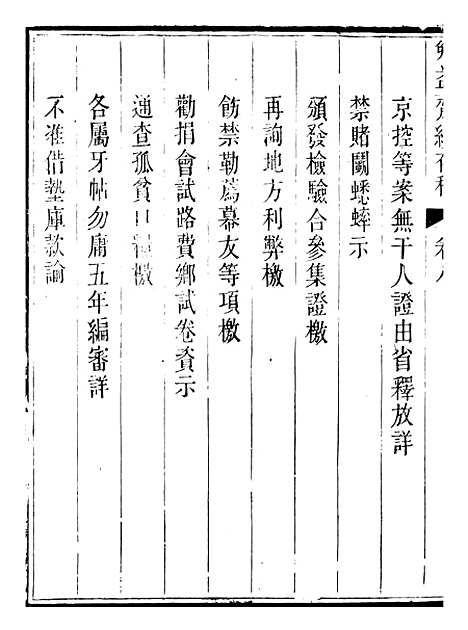 益齋續存稿 卷八
京控等案無干人證由省釋放詳
禁賭鬭蟋蟀示
頒發檢驗合參集證檄
再詢地方利弊檄
飭禁勒薦幕友等項檄
勸捐會試路費鄉試卷資示
通查孤貧口糧檄
各屬牙帖勿庸五年編審詳
不准借墊庫款諭